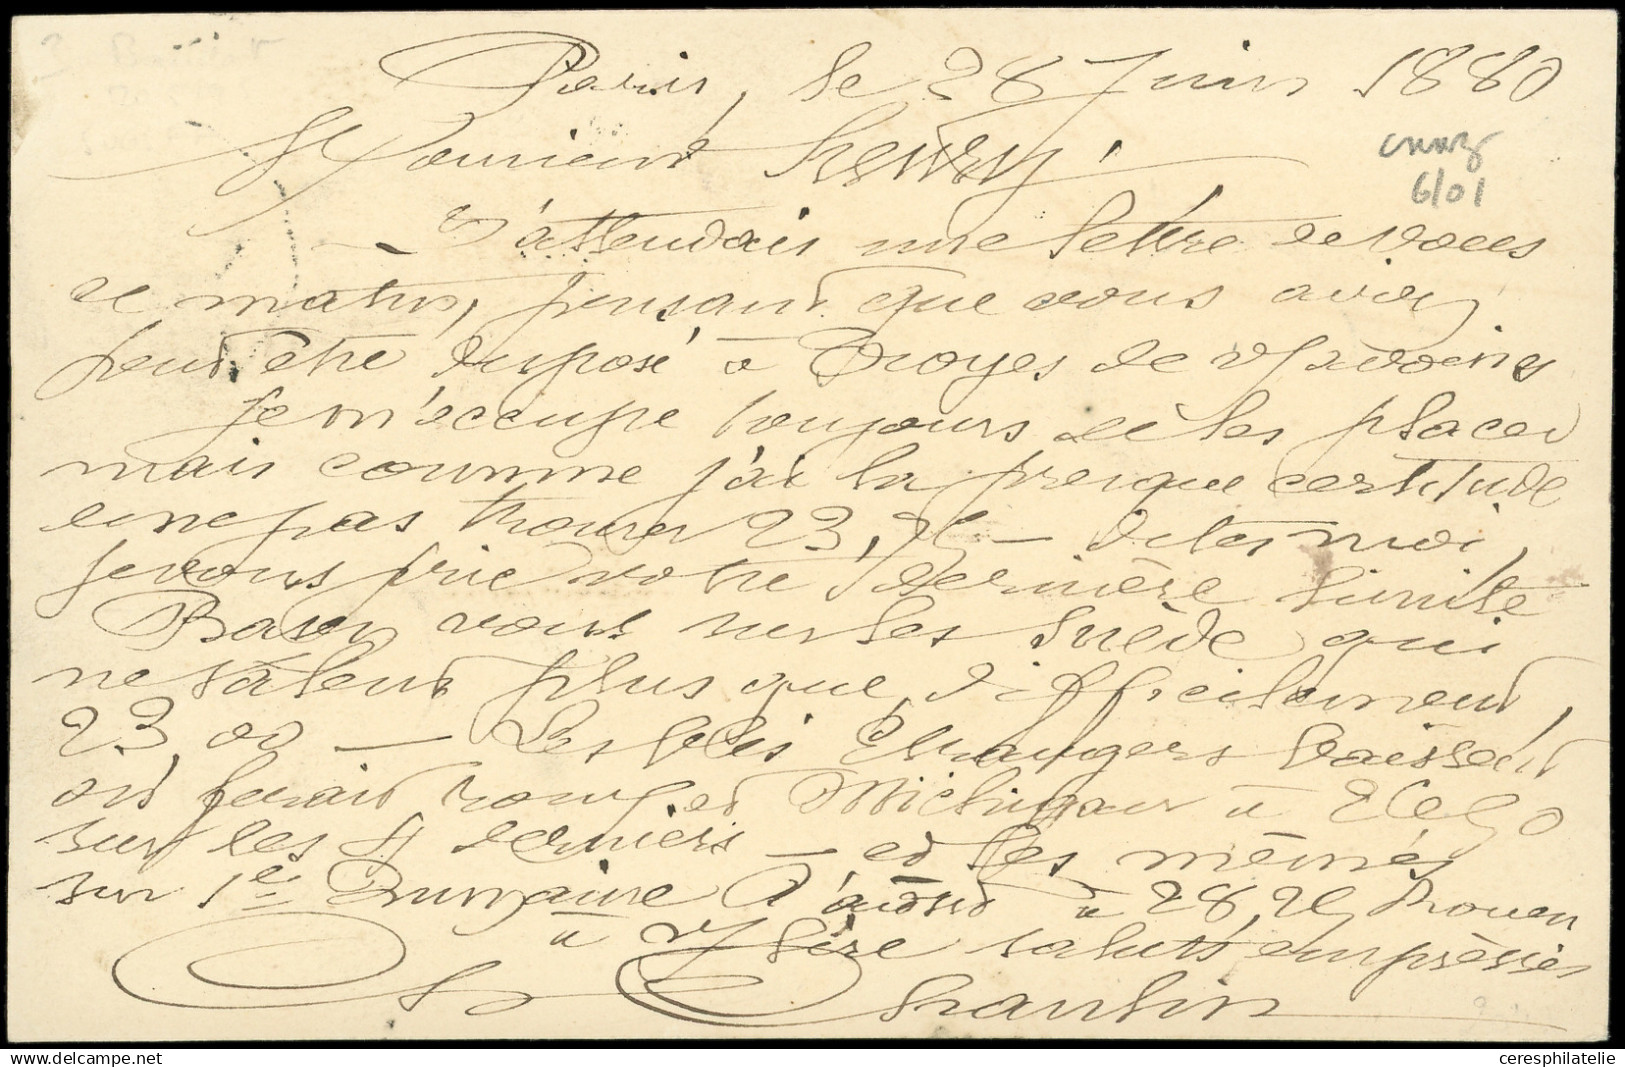 Paris, le 28 Juin 1880
Monsieur Henry,
J'attendais une lettre de vous
ce matin, pensant que vous aviez
peut être disposé à Troyes de vos avoines
Je m'occupe toujours de les placer
mais comme j'ai la presque certitude
de ne pas trouver 23,75 — dites moi,
je vous prie votre dernière limite
Basez vous sur les Suède qui
ne valent plus que difficilement,
23,00 — Les blés Etrangers baissent
on ferait rouges Michigan à
sur les 4 derniers — et les mêmes
sur 1ers Quinzaine d'aout à 28,25 Rouen
à salutts emprèssées
6/01
ceresphilatelie